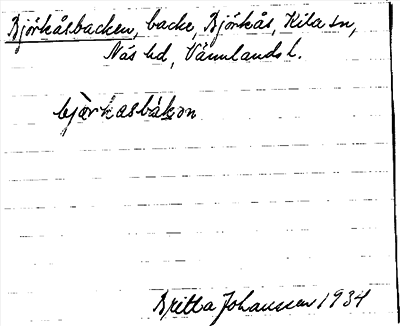 Björkåsbacken, backe, Björkås, Kila sn,
Näs hd, Värmlands l.
bjärkasbákon
Britta Johansson 1934